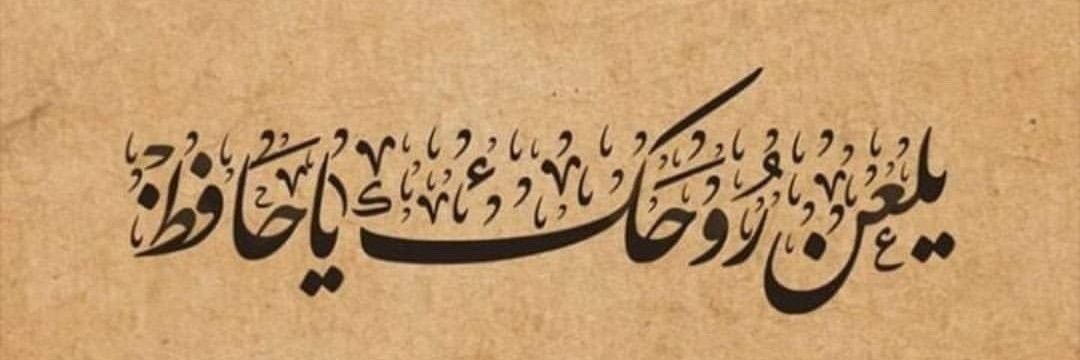 يلعن رُوحَك يا حَافظ